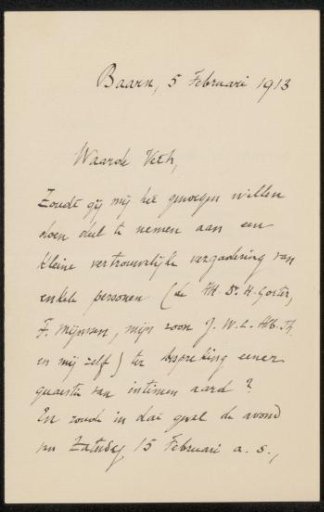 Baarn, 5 Februari 1913
Waarde Veth,
Zoudt gij mij het genoegen willen
doen deel te nemen aan een
kleine vertrouwelijke vergadering van
enkele personen (de HH. Dr. H. Gorter,
F. Mijnssen, mijn zoon J. W. L.
en mij zelf) ter bespreking eener
quaestie van intimen aard?
En zoudt in dat geval de avond
van Zaturdag 15 Februari a. s.,